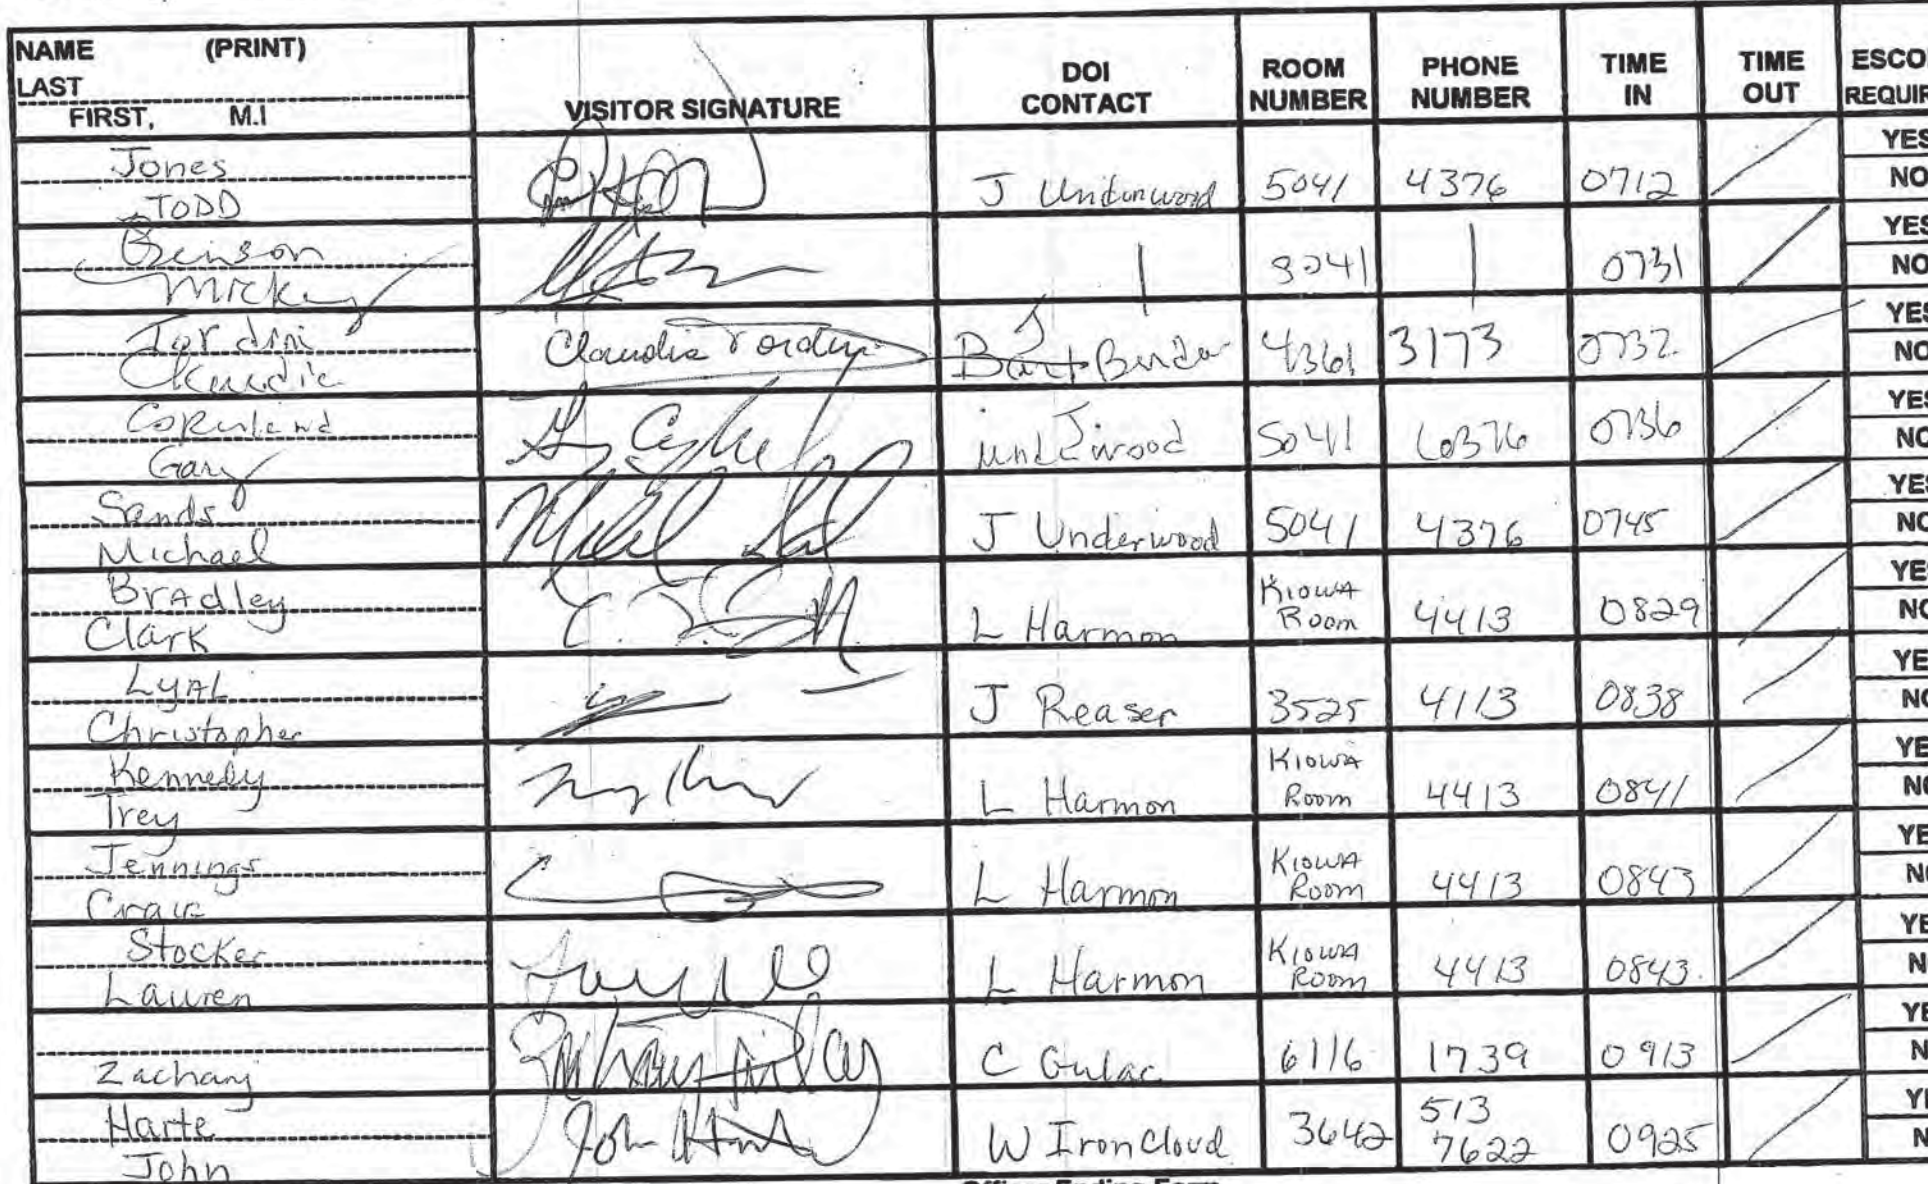 NAME (PRINT)
LAST
FIRST, M.I
VISITOR SIGNATURE
DOI
CONTACT
ROOM
NUMBER
PHONE
NUMBER
TIME
IN
TIME
OUT
ESCO
REQUIR
Jones
TODD
J Underwood 5041 4376 0712
YES
NO
Benson
Mickey
5041 0731
YES
NO
Tordini
Claudia
Claudia Tordini
J
Bart Binder 4361 3173 0732
YES
NO
Copeland
Gary
J
underwood 5041 6376 0736
YES
NO
Sands
Michael
J Underwood 5041 4376 0745
YES
NO
Bradley
Clark
L Harmon
KIOWA
Room
4413 0829
YES
NO
LYAL
Christopher
J Reaser 3525 4113 0838
YE
NO
Kennedy
Trey
L Harmon
KIOWA
Room
4413 0841
YE
NO
Jennings
Craig
L Harmon
KIOWA
Room
4413 0843
YE
NO
Stocker
Lauren
L Harmon
KIOWA
Room
4413 0843
YE
N
Zachary
C Gulac 6116 1739 0913
YE
N
Harte
John
John Harte
W IronCloud 3642
513
7622
0925
YE
N